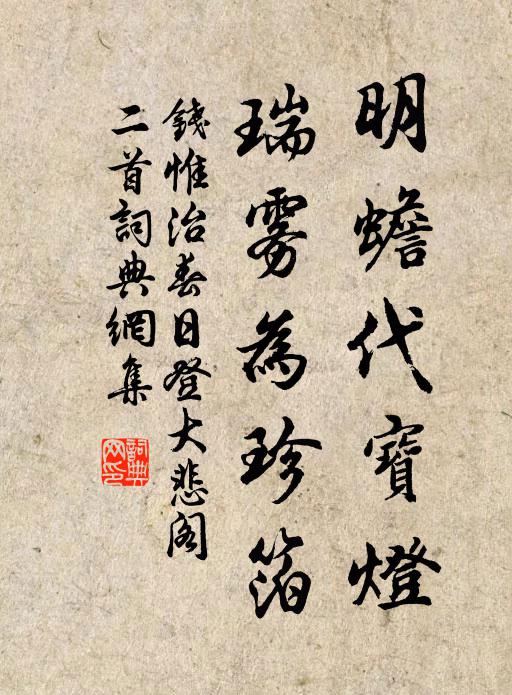 明蟾代寶燈
瑞雾為珍箔
錢惟治春日登大悲阁
二首詞典網集
詞典网印